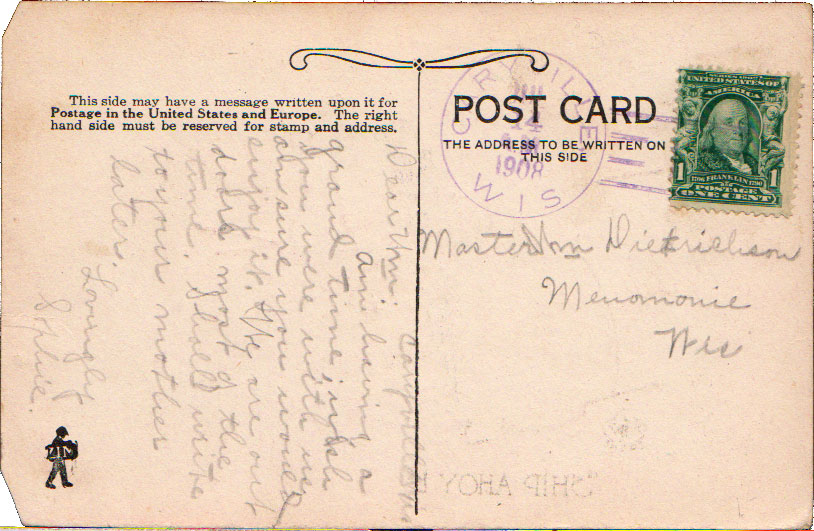 This side may have a message written upon it for
Postage in the United States and Europe. The right
hand side must be reserved for stamp and address.
POST CARD
THE ADDRESS TO BE WRITTEN ON
THIS SIDE
1908
WIS
SERIES 1902
UNITED STATES OF
AMERICA
1 1
1706 FRANKLIN 1790
POSTAGE
ONE CENT
Master Wm Dietrichson
Menomonie
Wis
Dear Wm.
Am having a
grand time, wish
you were with us
am sure you would
enjoy it. We are out
doors most of the
time. Shall write
to your mother
later.
Lovingly
Sophie.
SHIP AHOY